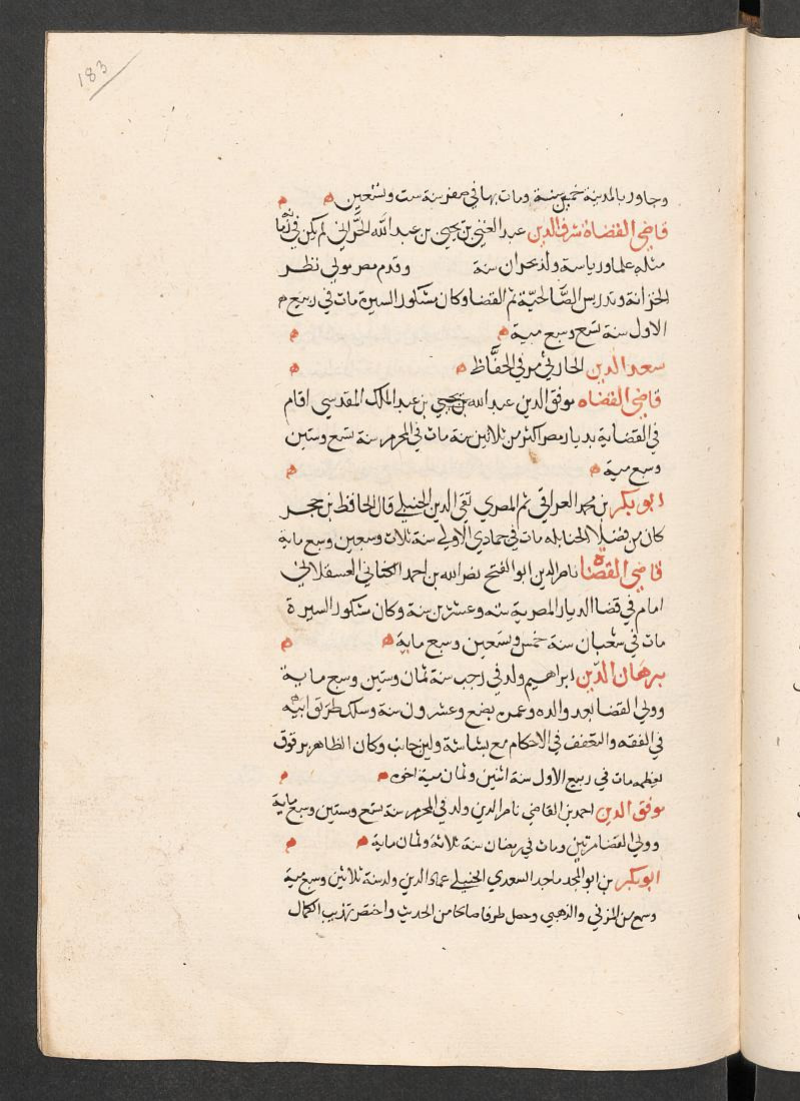 183
وجاور بالمدينة خمسين سنة ومات بها في صفر سنة ست وتسعين ه م
قاضي القضاة شرف الدين عبد الغني بن يحيى بن عبد الله الحراني لم يكن في زمانه
مثله علما ورياسة ولد بحران سنة وقدم مصر فولي نظر
الخزانة وتدريس الصالحية ثم القضا وكان مشكور السيرة مات في ربيع م
الاول سنة تسع وسبع مية ه م
سعد الدين الحارثي مر في الحفاظ ه م
قاضي القضاه موفق الدين عبد الله بن يحيي بن عبد الملك المقدسي اقام
في القضا بديار مصر اكثر من ثلاثين سنة مات في المحرم سنة تسع وستين
وسبع مية ه م
ابو بكر بن محمد العراقي ثم المصري تقي الدين الحنبلي قال الحافظ بن حجر
كان من فضلا الحنابله مات في جمادي الاولي سنة ثلاث وسبعين وسبع ماية
قاضي القضاه ناصر الدين ابو الفتح نصر الله بن احمد الكناني العسقلاني
اقام في قضا الديار المصرية ستة وعشرين سنة وكان مشكور السيرة
مات في شعبان سنة خمس وتسعين وسبع ماية ه م
برهان الدين ابراهيم ولد في رجب سنة ثمان وستين وسبع ماية
وولي القضا بعد والده وعمره بضع وعشرون سنة وسلك طريق ابيه
في الفقه والتعفف في الاحكام مع بشاشة ولين جانب وكان الظاهر برقوق
يعظمه مات في ربيع الاول سنة اثنين وثمان مية ه م
موفق الدين احمد بن القاضي ناصر الدين ولد في المحرم سنة تسع وستين وسبع ماية
وولي القضا مرتين ومات في رمضان سنة ثلاثة وثمان ماية ه م
ابو بكر بن ابو المجد ماجد السعدي الحنبلي عماد الدين ولد سنة ثلاثين وسبع مية
وسمع من المزني والذهبي وحصل طرفا صالحا من الحديث واختصر تهذيب الكمال